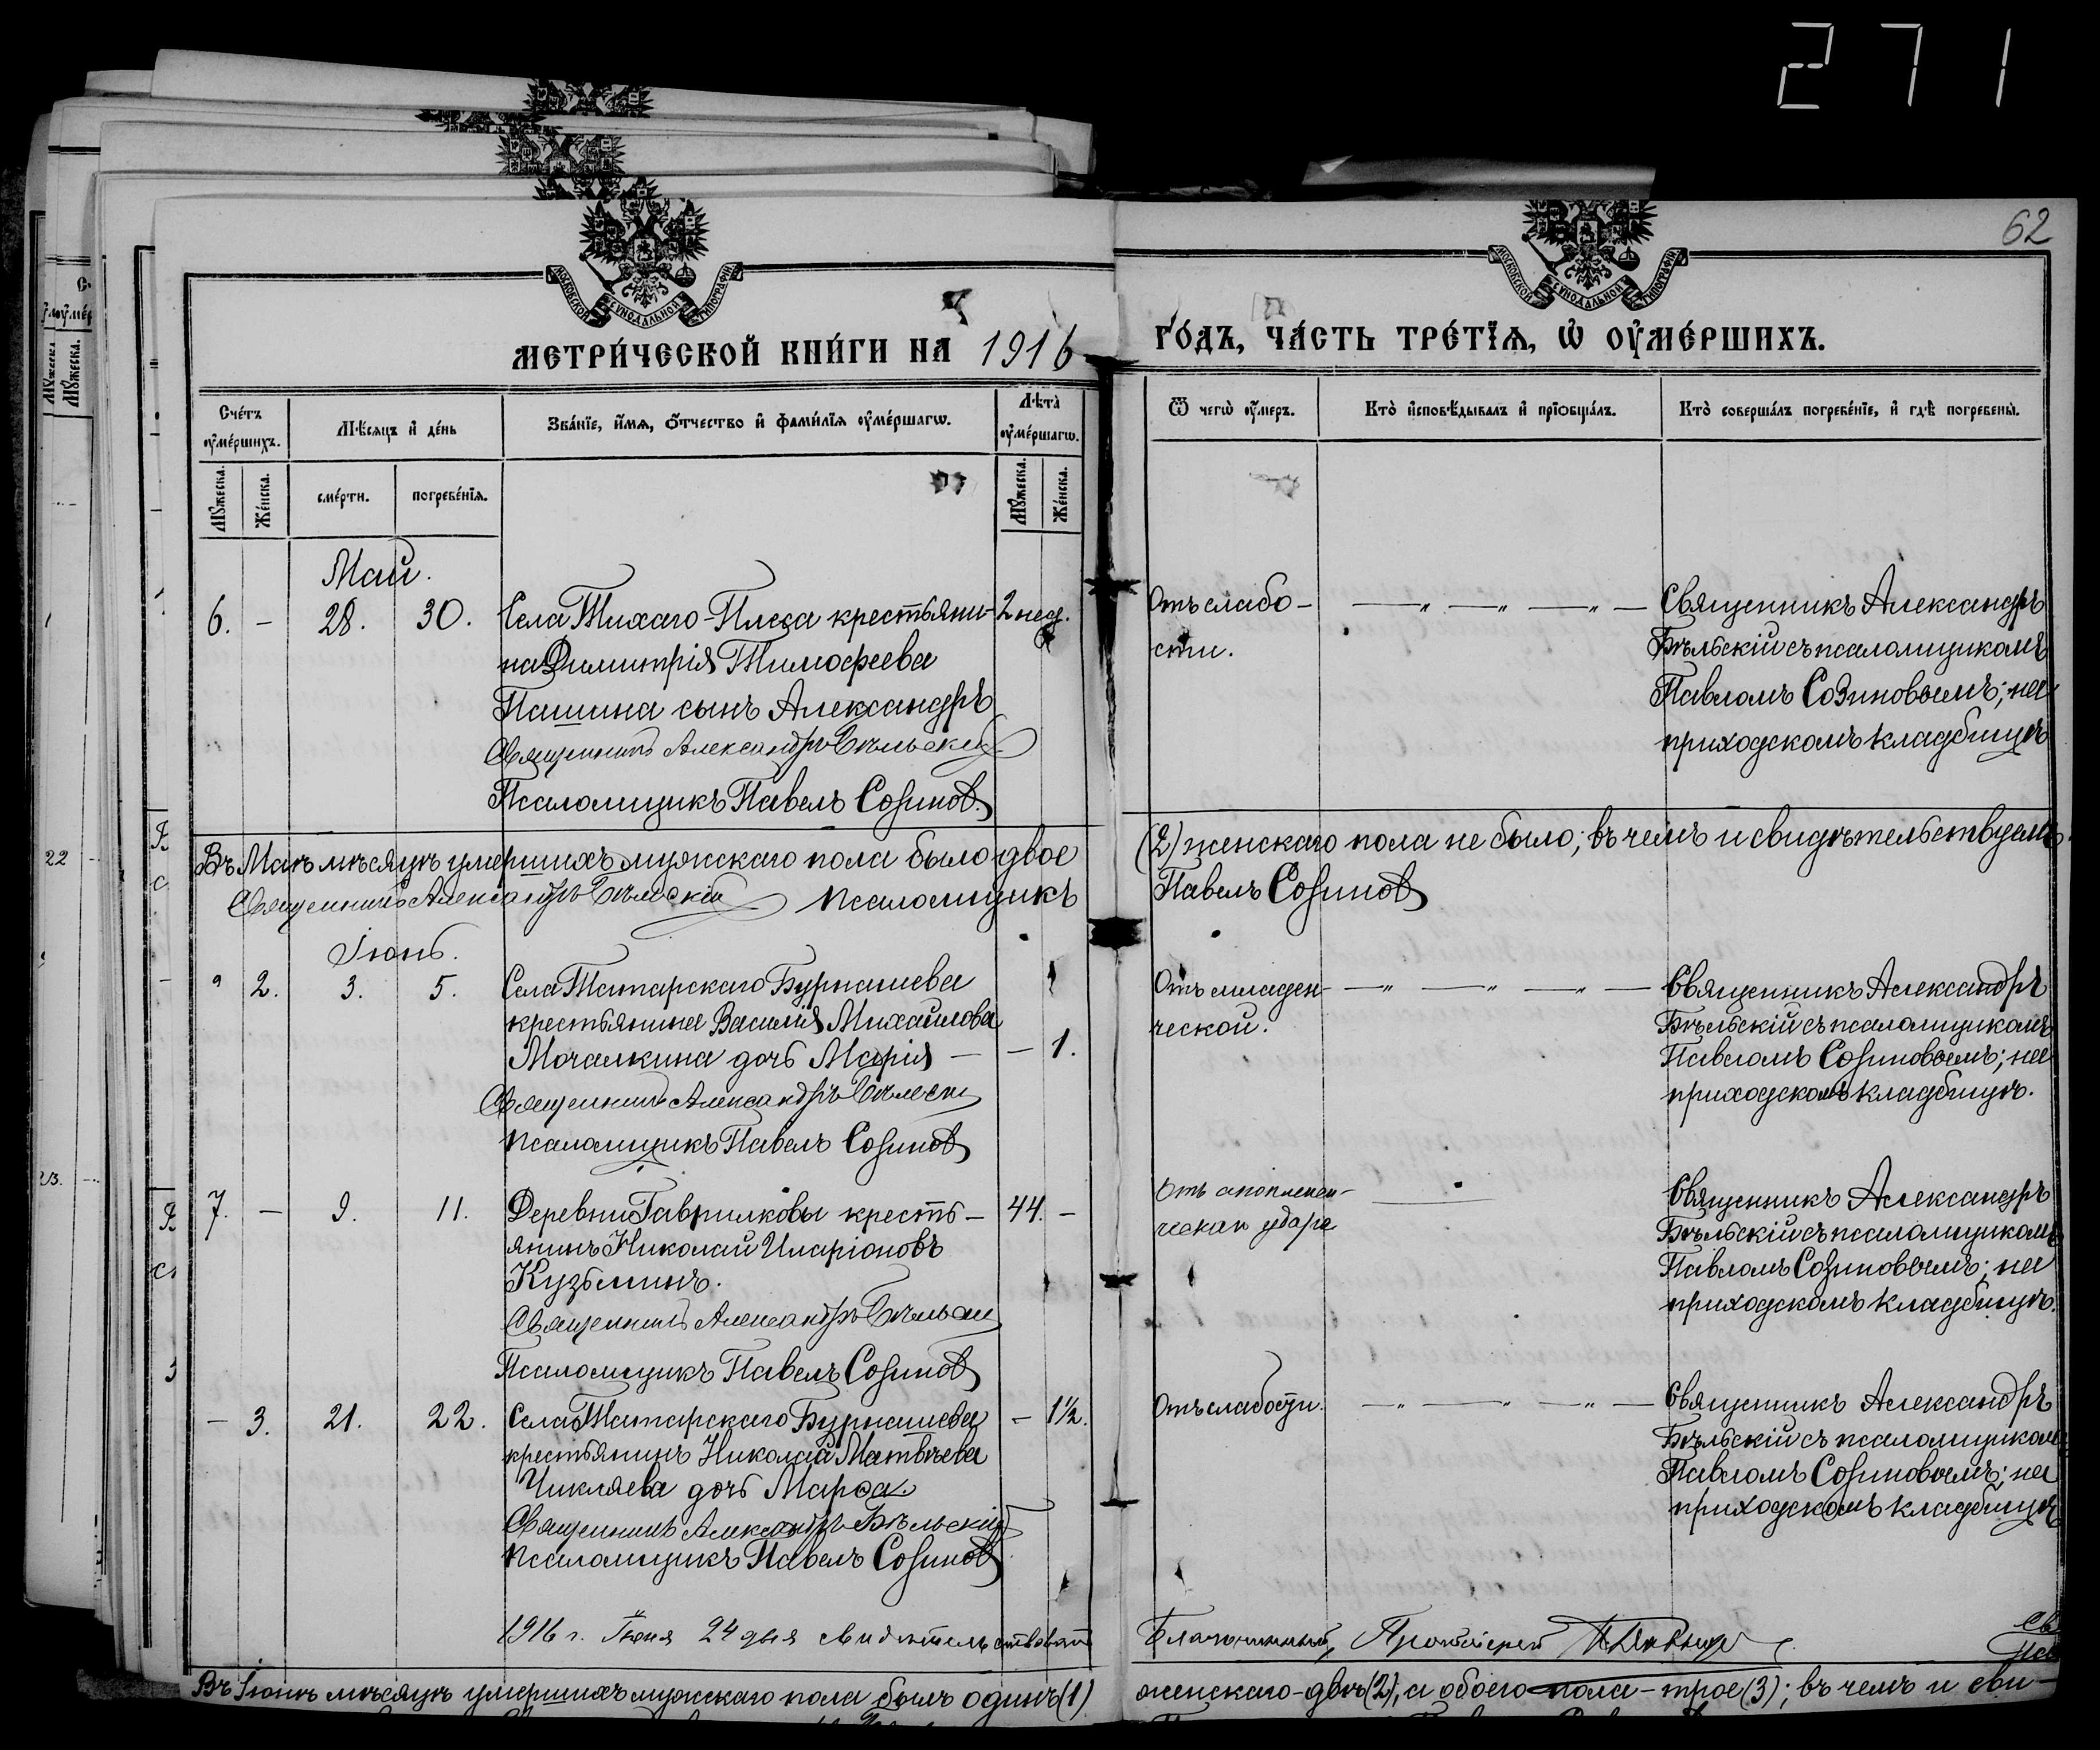 271
62
МОСКОВСКОЙ СѴНОДАЛЬНОЙ ТИПОГРАФІИ
МОСКОВСКОЙ СѴНОДАЛЬНОЙ ТИПОГРАФІИ
МЕТРИ́ЧЕСКОЙ КНИ́ГИ НА 1916 ГО́ДЪ, ЧА́СТЬ ТРЕ́ТЇѦ, Ѡ҆ ОУ҆МЕ́РШИХЪ.
Сче́тъ оу҆ме́ршихъ.
Мѣ́сяцъ и҆ де́нь
Зва́нїе, и҆́мѧ, ѻ҆́тчество и҆ фами́лїѧ оу҆ме́ршагѡ.
Лѣ́та оу҆ме́ршагѡ.
Ѿ чегѡ̀ оу҆́меръ.
Кто̀ и҆сповѣ́дывалъ и҆ прїѡбща́лъ.
Кто̀ соверша́лъ погребе́нїе, и҆ гдѣ̀ погребены̀.
Мꙋ́жеска.
Же́нска.
сме́рти.
погребе́нїѧ.
Мꙋ́жеска.
Же́нска.
Май.
6. — 28. 30. Села Тихаго-Плеса крестьяни- 2 нед.
на Димитрія Тимофеева
Пашина сынъ Александръ
Священникъ Александръ Бѣльскій
Псаломщикъ Павелъ Созинов
Отъ слабо-
сти.
Священникъ Александръ
Бѣльскій съ псаломщикомъ
Павломъ Созиновымъ; на
приходскомъ кладбищѣ
Въ Маѣ мѣсяцѣ умершихъ мужскаго пола было двое
(2) женскаго пола не было; въ чемъ и свидѣтельствуемъ.
Священникъ Александръ Бѣльскій Псаломщикъ
Павелъ Созинов
Іюнь.
2. 3. 5. Села Татарскаго Бурнашева
крестьянина Василія Михайлова
Мочалкина дочь Марія — — 1.
Священникъ Александръ Бѣльски
Псаломщикъ Павелъ Созинов
Отъ младен-
ческой.
Священникъ Александръ
Бѣльскій съ псаломщикомъ
Павломъ Созиновымъ; на
приходскомъ кладбищѣ.
7. — 9. 11. Деревни Гаврилковы кресть- 44. —
янинъ Николай Иларіоновъ
Кузьминъ.
Священникъ Александръ Бѣльски
Псаломщикъ Павелъ Созинов
Отъ апоплекси-
ческаго удара
Священникъ Александръ
Бѣльскій съ псаломщикомъ
Павломъ Созиновымъ; на
приходскомъ кладбищѣ.
— 3. 21. 22. Села Татарскаго Бурнашева — 1½.
крестьянинъ Николая Матвѣева
Чикляева дочь Марѳа.
Священникъ Александръ Бѣльскій
Псаломщикъ Павелъ Созинов
Отъ слабости.
Священникъ Александръ
Бѣльскій съ псаломщикомъ
Павломъ Созиновымъ; на
приходскомъ кладбищѣ
1916 г. Іюня 24 дня свидѣтельствовалъ
Благочинный, Протоіерей
Въ Іюнѣ мѣсяцѣ умершихъ мужскаго пола былъ одинъ (1)
женскаго-двѣ (2), а обоего пола-трое (3); въ чемъ и сви-